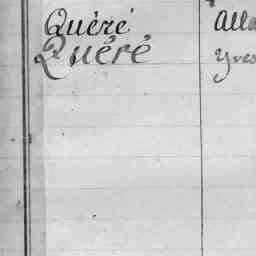 Quéré Alla
Quéré Yves